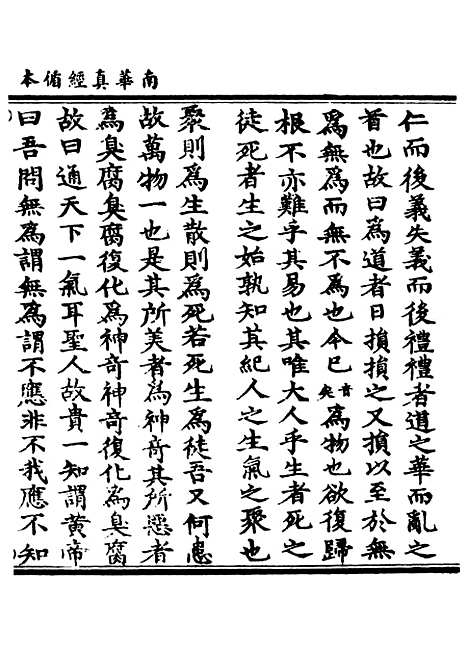 南華真經循本
仁而後義失義而後禮禮者道之華而亂之
首也故曰爲道者日損損之又損以至於無
爲無爲而無不爲也今已音矣爲物也欲復歸
根不亦難乎其易也其唯大人乎生者死之
徒死者生之始孰知其紀人之生氣之聚也
聚則爲生散則爲死若死生爲徒吾又何患
故萬物一也是其所美者爲神奇其所惡者
爲臭腐臭腐復化爲神奇神奇復化爲臭腐
故曰通天下一氣耳聖人故貴一知謂黄帝
曰吾問無爲謂無爲謂不應非不我應不知